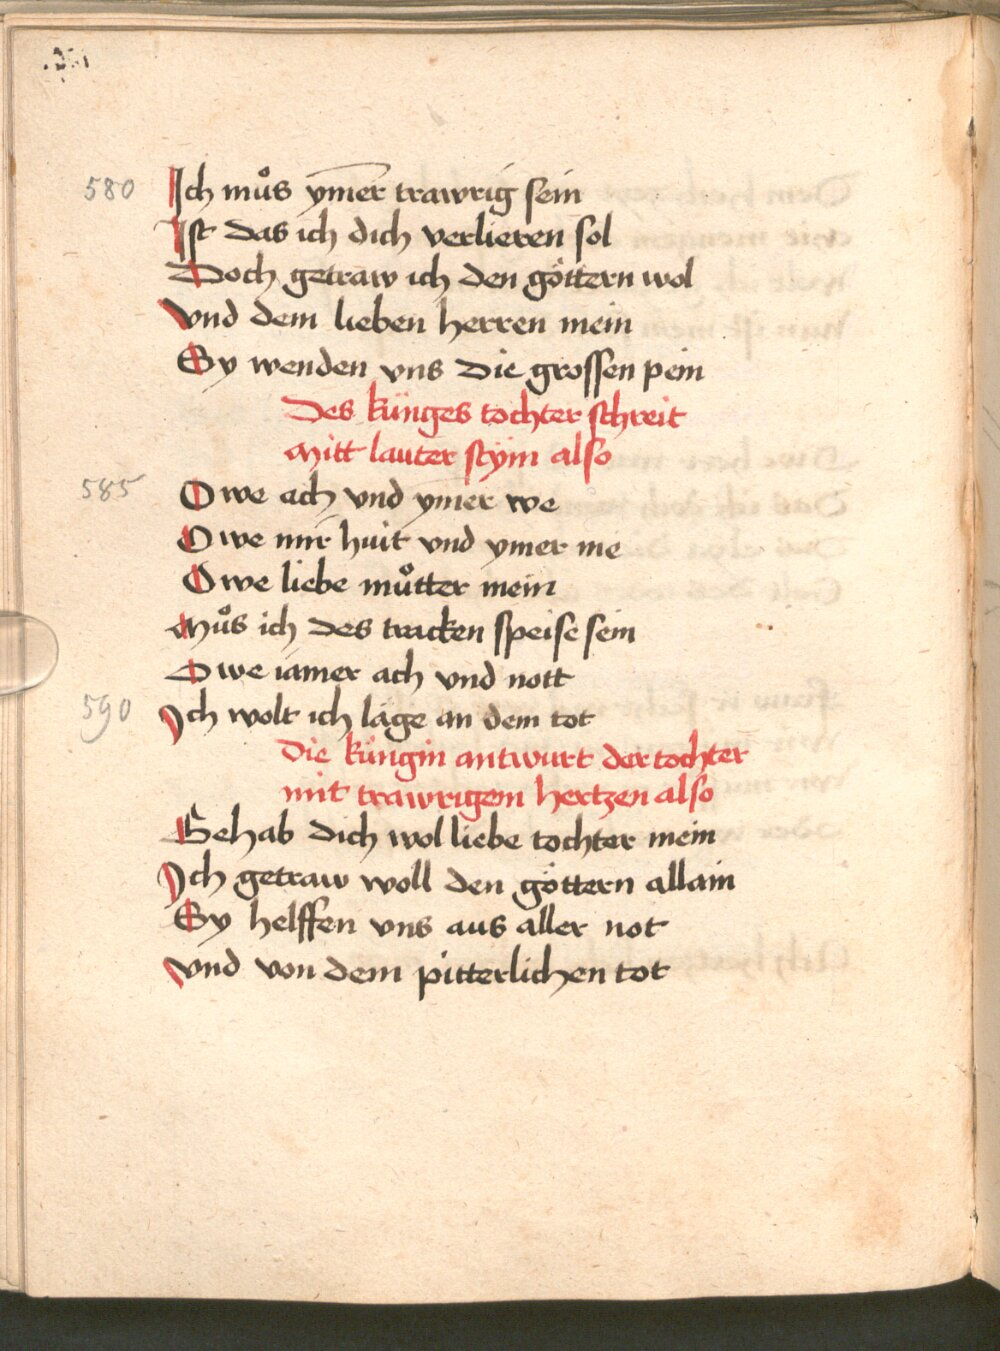 580 Ich muͦs ym̄er trawrig sein
Ist das ich dich verlieren sol
Doch getraw ich den göttern wol
Vnd dem lieben herren mein
Sy wenden vns die grossen pein
Des künges tochter schreit
Mitt lauter stym also
585 Owe ach vnd ym̄er we
Owe mir huit vnd ymer me
Owe liebe muͦtter mein
Muͦs ich des tracken speise sein
Owe iamer ach vnd nott
590 Ich wolt ich läge an dem tot
Die küngin antwurt der tochter
mit trawrigem hertzen also
Gehab dich wol liebe tochter mein
Ich getraw woll den göttern allain
Sy helffen vns aus aller not
Vnd von dem pitterlichen tot